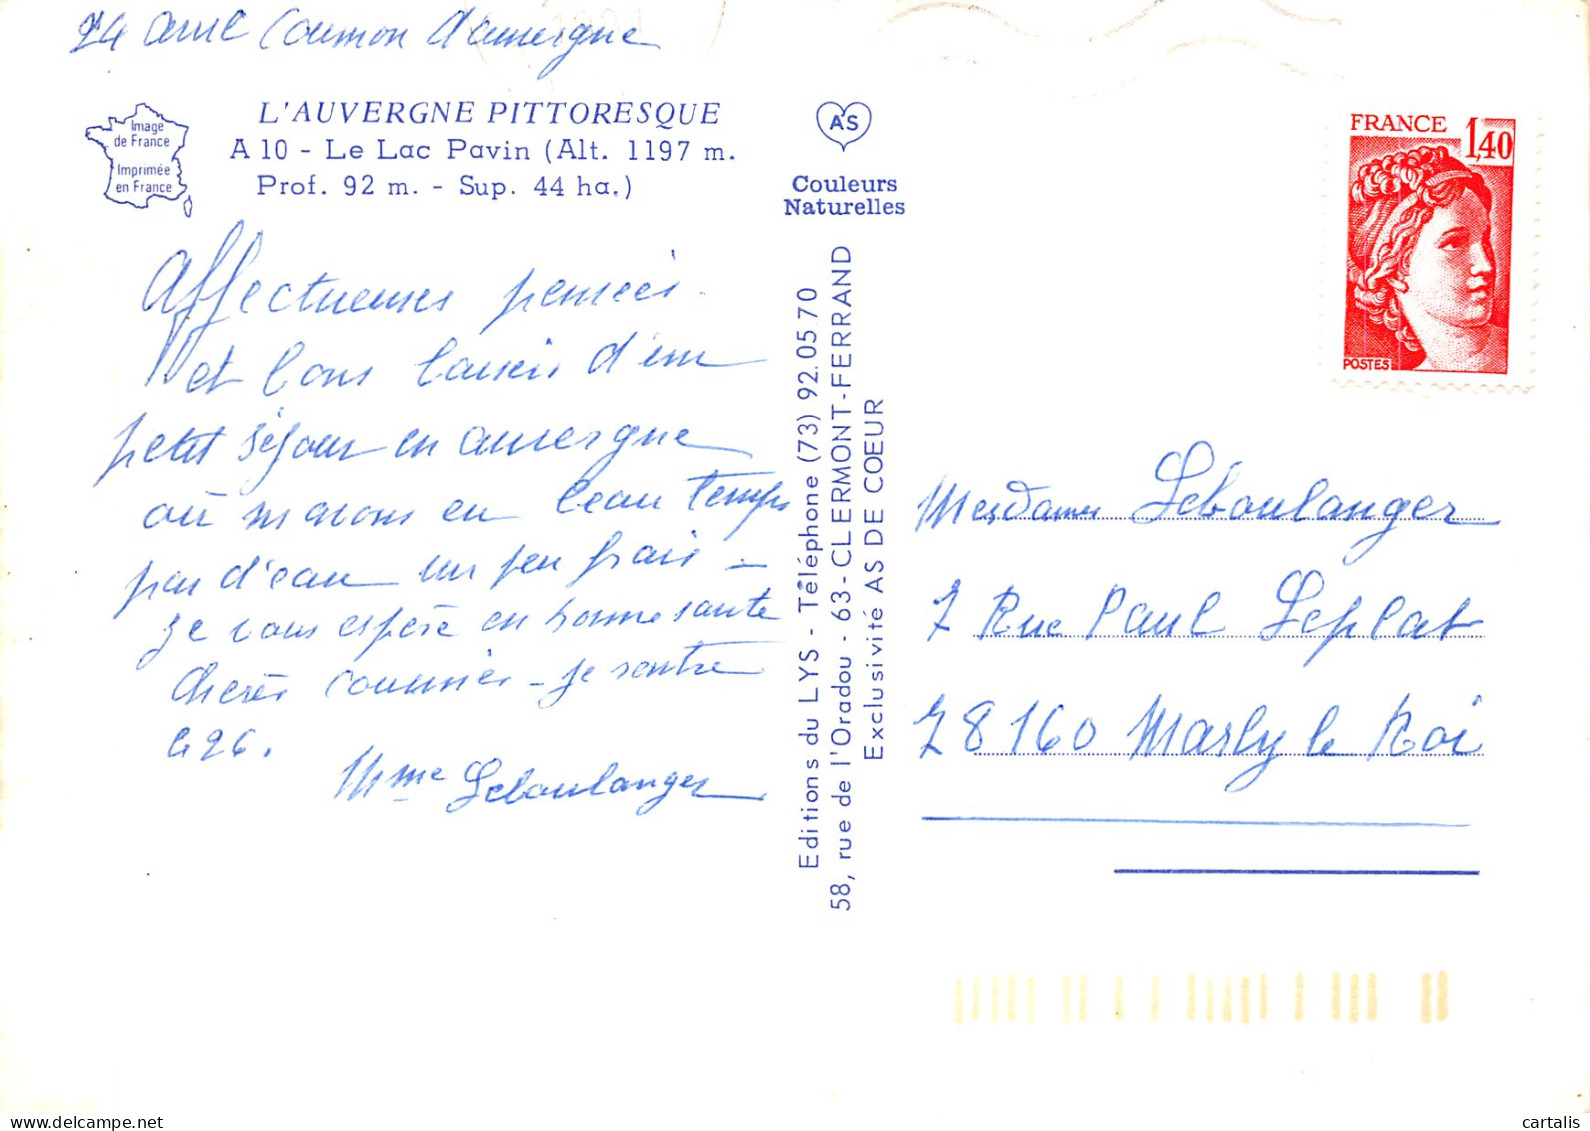 24 avril Cournon d'auvergne
Image
de France
Imprimée
en France
L'AUVERGNE PITTORESQUE
A 10 - Le Lac Pavin (Alt. 1197 m.
Prof. 92 m. - Sup. 44 ha.)
AS
Couleurs
Naturelles
FRANCE 1,40
POSTES
Affectueuses pensées.
et bons baisers d'un
petit séjour en auvergne
où ns avons eu beau temps
pas d'eau un peu frais -
je vous espère en bonne santé
cheres cousines - je rentre
le 26.
Mme Leboulanger
Editions du LYS - Téléphone (73) 92.05 70
58, rue de l'Oradou - 63 - CLERMONT-FERRAND
Exclusivité AS DE COEUR
Mesdames Leboulanger
7 Rue Paul Leplat
78160 Marly le Roi
cartalis
delcampe.net